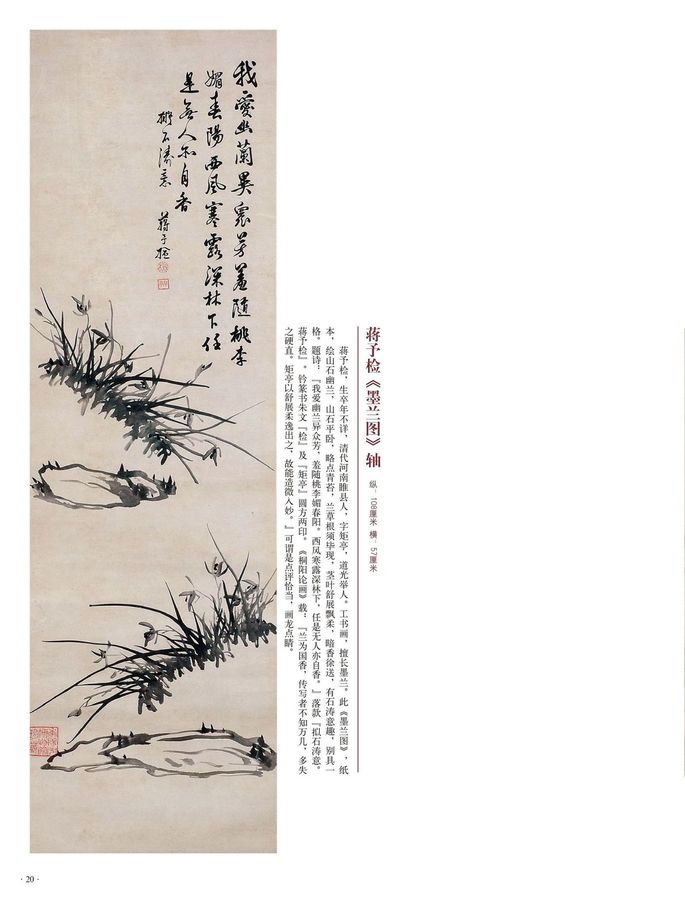 蒋予检《墨兰图》轴 纵：108厘米 横：57厘米
蒋予检，生卒年不详，清代河南睢县人，字矩亭，道光举人。工书画，擅长墨兰。此《墨兰图》，纸
本，绘山石幽兰，山石平卧，略点青苔，兰草根须毕现，茎叶舒展飘柔，暗香徐送，有石涛意趣，别具一
格。题诗：『我爱幽兰异众芳，羞随桃李媚春阳。西风寒露深林下，任是无人亦自香。』落款『拟石涛意。
蒋予检』。钤篆书朱文『检』及『矩亭』圆方两印。《桐阳论画》载：『兰为国香，传写者不知万几，多失
之硬直。矩亭以舒展柔逸出之，故能造微入妙。』可谓是点评恰当，画龙点睛。
我愛幽蘭異衆芳羞隨桃李
媚春陽西風寒露深林下任
是無人亦自香
擬石濤意 蔣予檢
·20·